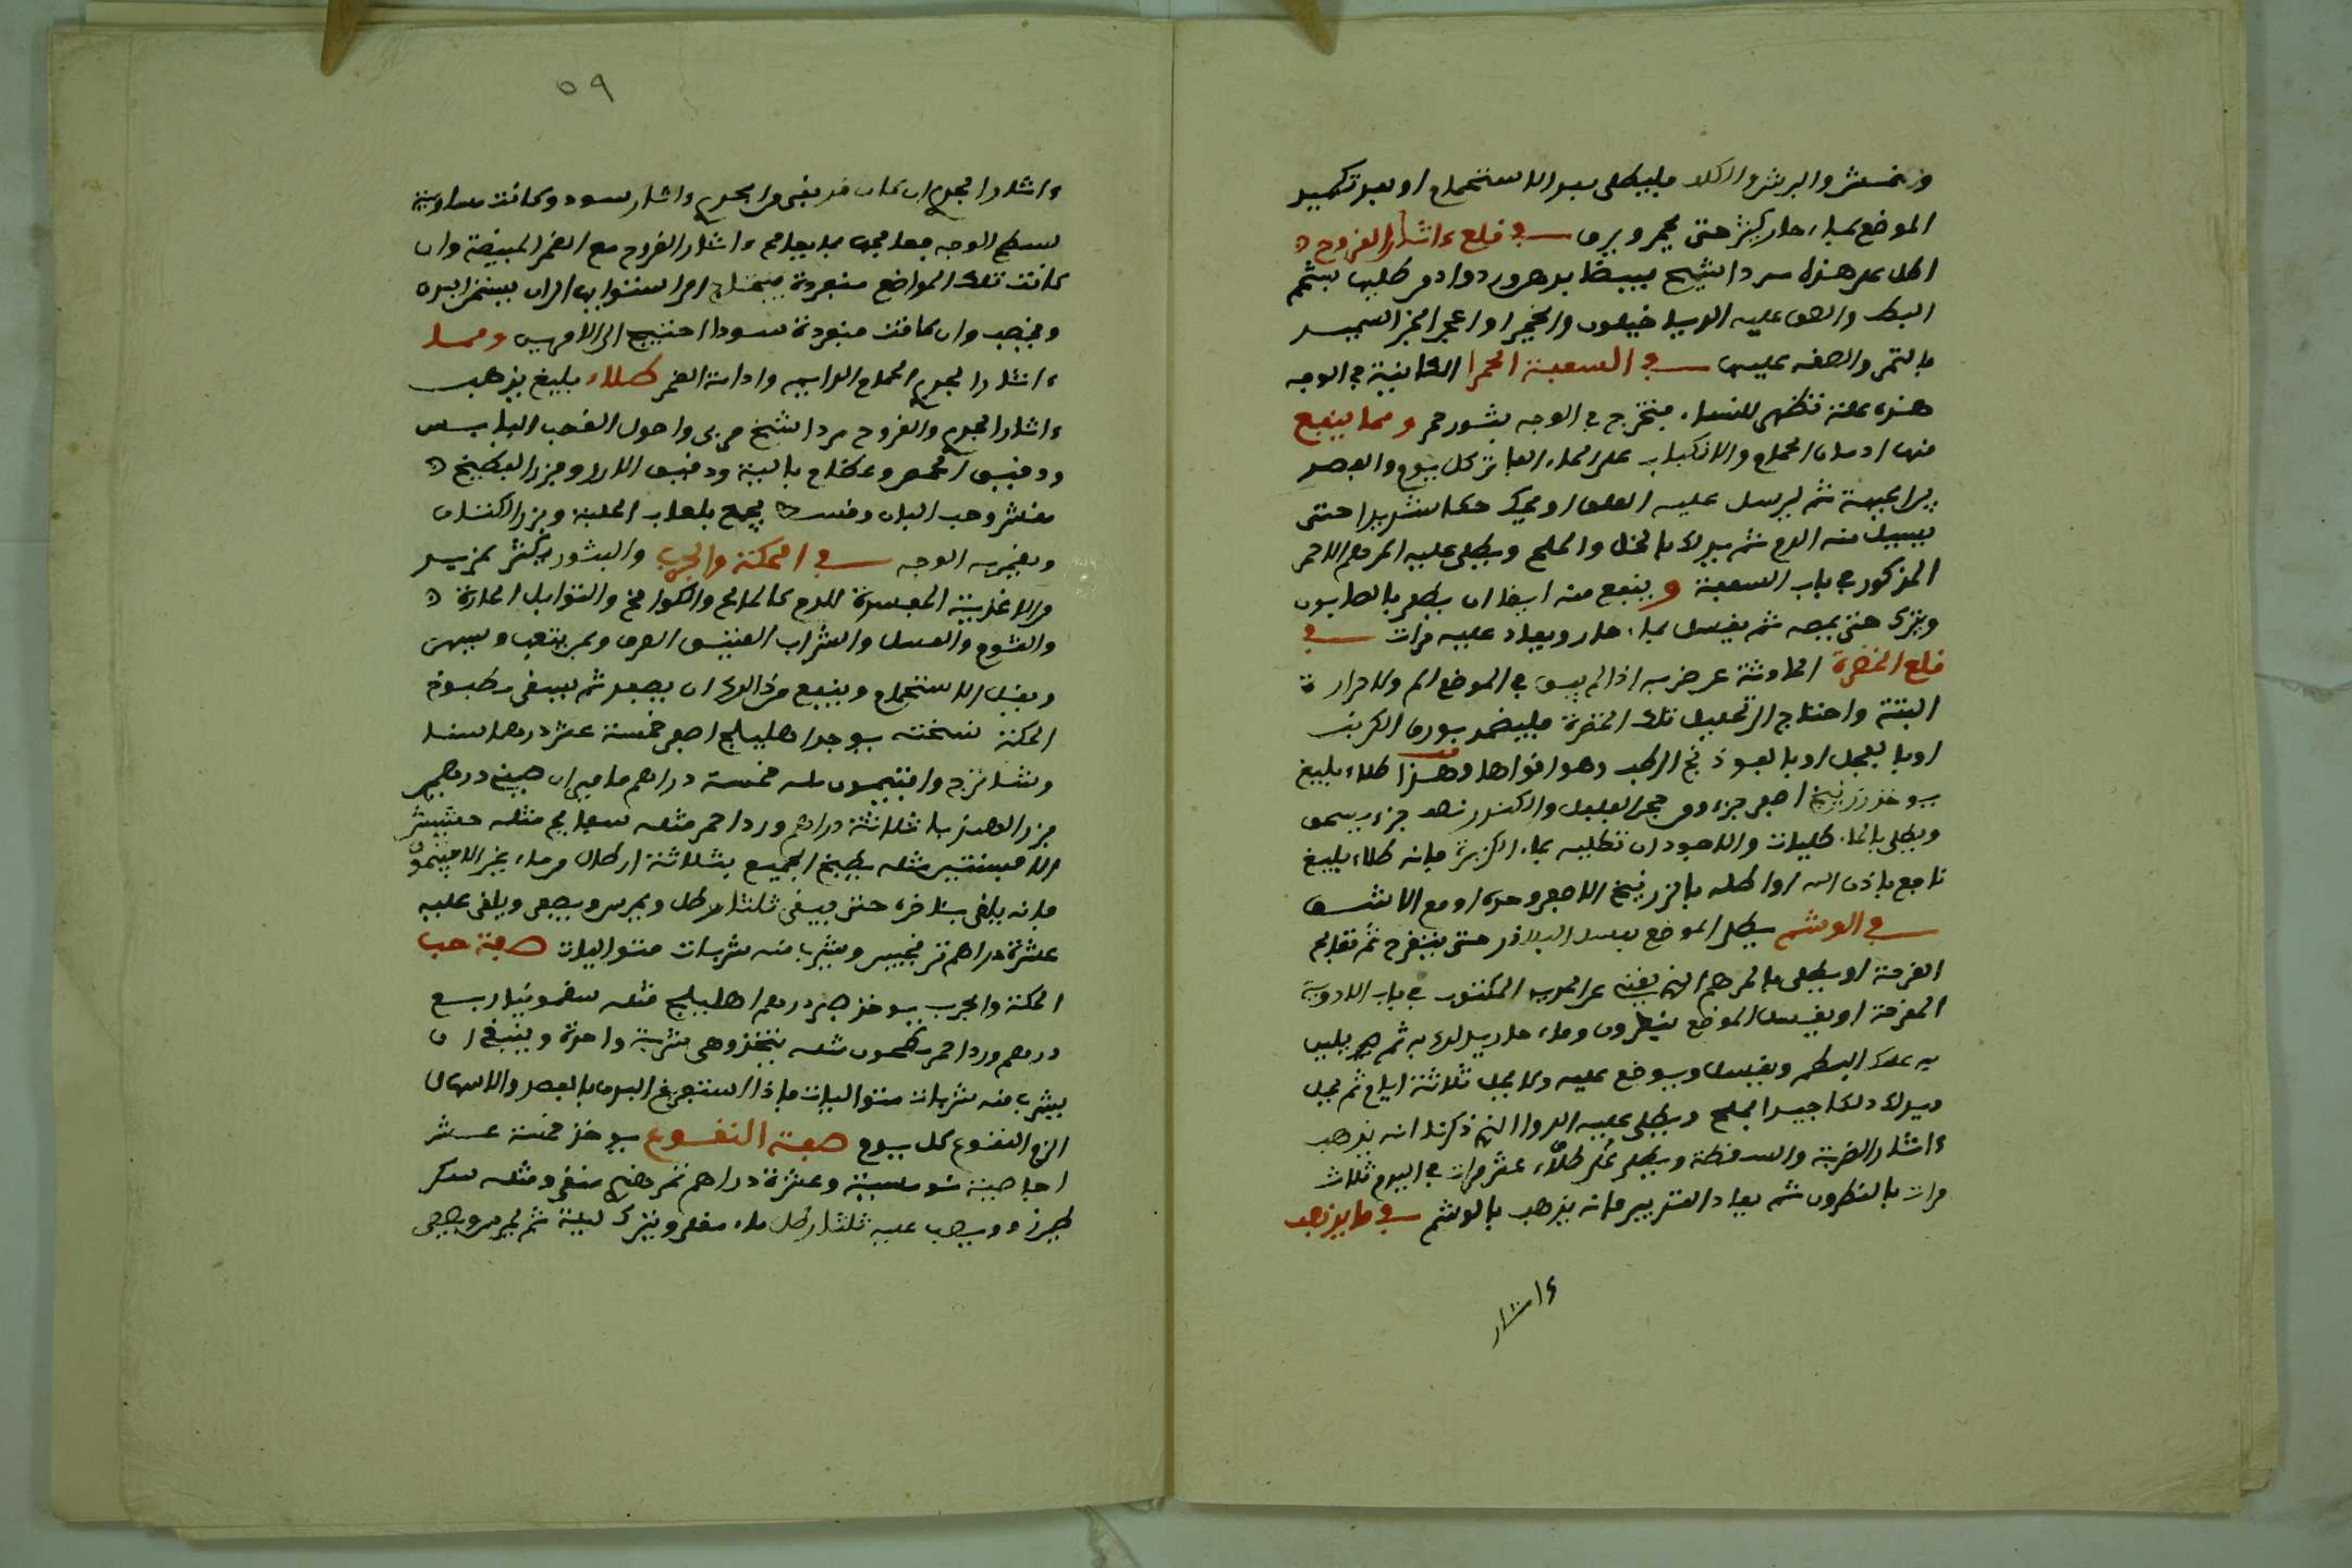 والنمش والبرش والكلف فليطلى بعد الاستحمام او بعد تكميد
الموضع بماء حار كثير حتى يحمر ويرق في قلع ءاثار القروح
البط والصق عليه الدياخيلون والخمير او اعجن الخبز السميد
بالتمر والصقه عليها في السعفة الحمرا الكاينة في الوجه
هذه علة تظهر للنساء فتخرج في الوجه بثور حمر ومما ينفع
منها ادمان الحمام والانكباب على الماء الفاتر كل يوم والفصد
في الجبهة ثم يرسل عليه العلق او يحك حكا شديدا حتى
يسيل منه الدم ثم يدلك بالخل والملح ويطلى عليه المرهم الاحمر
المذكور في باب السعفة وينفع منه ايضا ان يطلى بالصابون
ويترك حتى يجف ثم يغسل بماء حار ويعاد عليه مرات في
قلع الخضرة الحادثة عن ضربة اذا لم يبق في الموضع الم ولا حرارة
البتة واحتاج الى تحليل تلك الخضرة فليضمد بورق الكرنب
او بالفجل او بالفوذنج الرطب وهو اقواها وهذا طلاء بليغ
يوخذ زرنيخ اصفر جزء ومن حجر الفلفل والكندر نصف جزء يسحق
ويطلى بالماء طليات والاجود ان تطليه بماء الكزبرة فانه طلاء بليغ
نافع باذن الله او اطله بالزرنيخ الاصفر وحده او مع الاشق
في الوشم يطلى الموضع بعسل البلاذر حتى يتقرح ثم تعالج
القرحة او يطلى بالمرهم الذي يغني عن الحديد المكتوب في باب الادوية
المقرحة او يغسل الموضع بنطرون وماء حار يدلك به ثم يلين
به علك البطم ويغسل ويوضع عليه ولا يحل ثلاثة ايام ثم يحل
ويدلك دلكا جيدا بملح ويطلى عليه الدوا الذي ذكرنا انه يذهب
ءاثار الضربة والسقطة ويطلى عشر مرات في اليوم ثلاث
مرات بالنطرون ثم يعاد التدبير فانه يذهب بالوشم في ما يذهب
ءاثار
٥٩
ءاثار الجدري ان كان قد بقي من الجدري ءاثار سود وكانت مساوية
لسطح الوجه فعالجها بما يعالج ءاثار القروح مع الغمر المبيضة وان
كانت تلك المواضع
وان كانت سودا احتيج الى الامرين ومما
ءاثار الجدري الحمام الدايم وادامة الغمر طلاء بليغ يذهب
ءاثار الجدري والقروح مرداسنج مربى واصول القصب اليابس
ودقيق الحمص وعظام بالية ودقيق الارز وبزر البطيخ
مقشر وحب البان وقسط يجمع بلعاب الحلبة وبزر الكتان
ويغمر به الوجه في الحكة والجرب والبثور يكثر بمن يدمن
والاغذية المفسدة للدم كالمالح والكوامخ والتوابل الحارة
والثوم والعسل والشراب العتيق الصرف وبمن يتعب ويسهر
ويقل الاستحمام وينفع من ذلك ان يفصد ثم يسقى مطبوخ
الحكة نسخته يوخذ اهليلج اصفر خمسة عشر درهما سنا
وشاهترج وافتيمون خمسة دراهم
بزر الهندبا ثلاثة دراهم ورد احمر مثله مثله
الافسنتين مثله يطبخ الجميع بثلاثة ارطال من ماء غير الافتيمون
فانه يلقى باخره حتى يبقى ثلثا رطل ويمرس ويصفى ويلقى عليه
عشرة دراهم ترنجبين ويشرب منه شربات متواليات صفة حب
الحكة والجرب يوخذ صبر درهم اهليلج مثله سقمونيا ربع
درهم ورد احمر مطحون مثله يتخذ وهي شربة واحدة وينبغي ان
يشرب منه شربات متواليات فاذا استفرغ البدن بالفصد والاسهال
الزم النقوع كل يوم صفة النقوع يوخذ خمسة عشر
اجاصة وعشرة دراهم تمر هندي منقى ومثله سكر
طبرزد ويصب عليه ثلثا رطل ماء مغلى ويترك ليلة ثم يمرس ويصفى